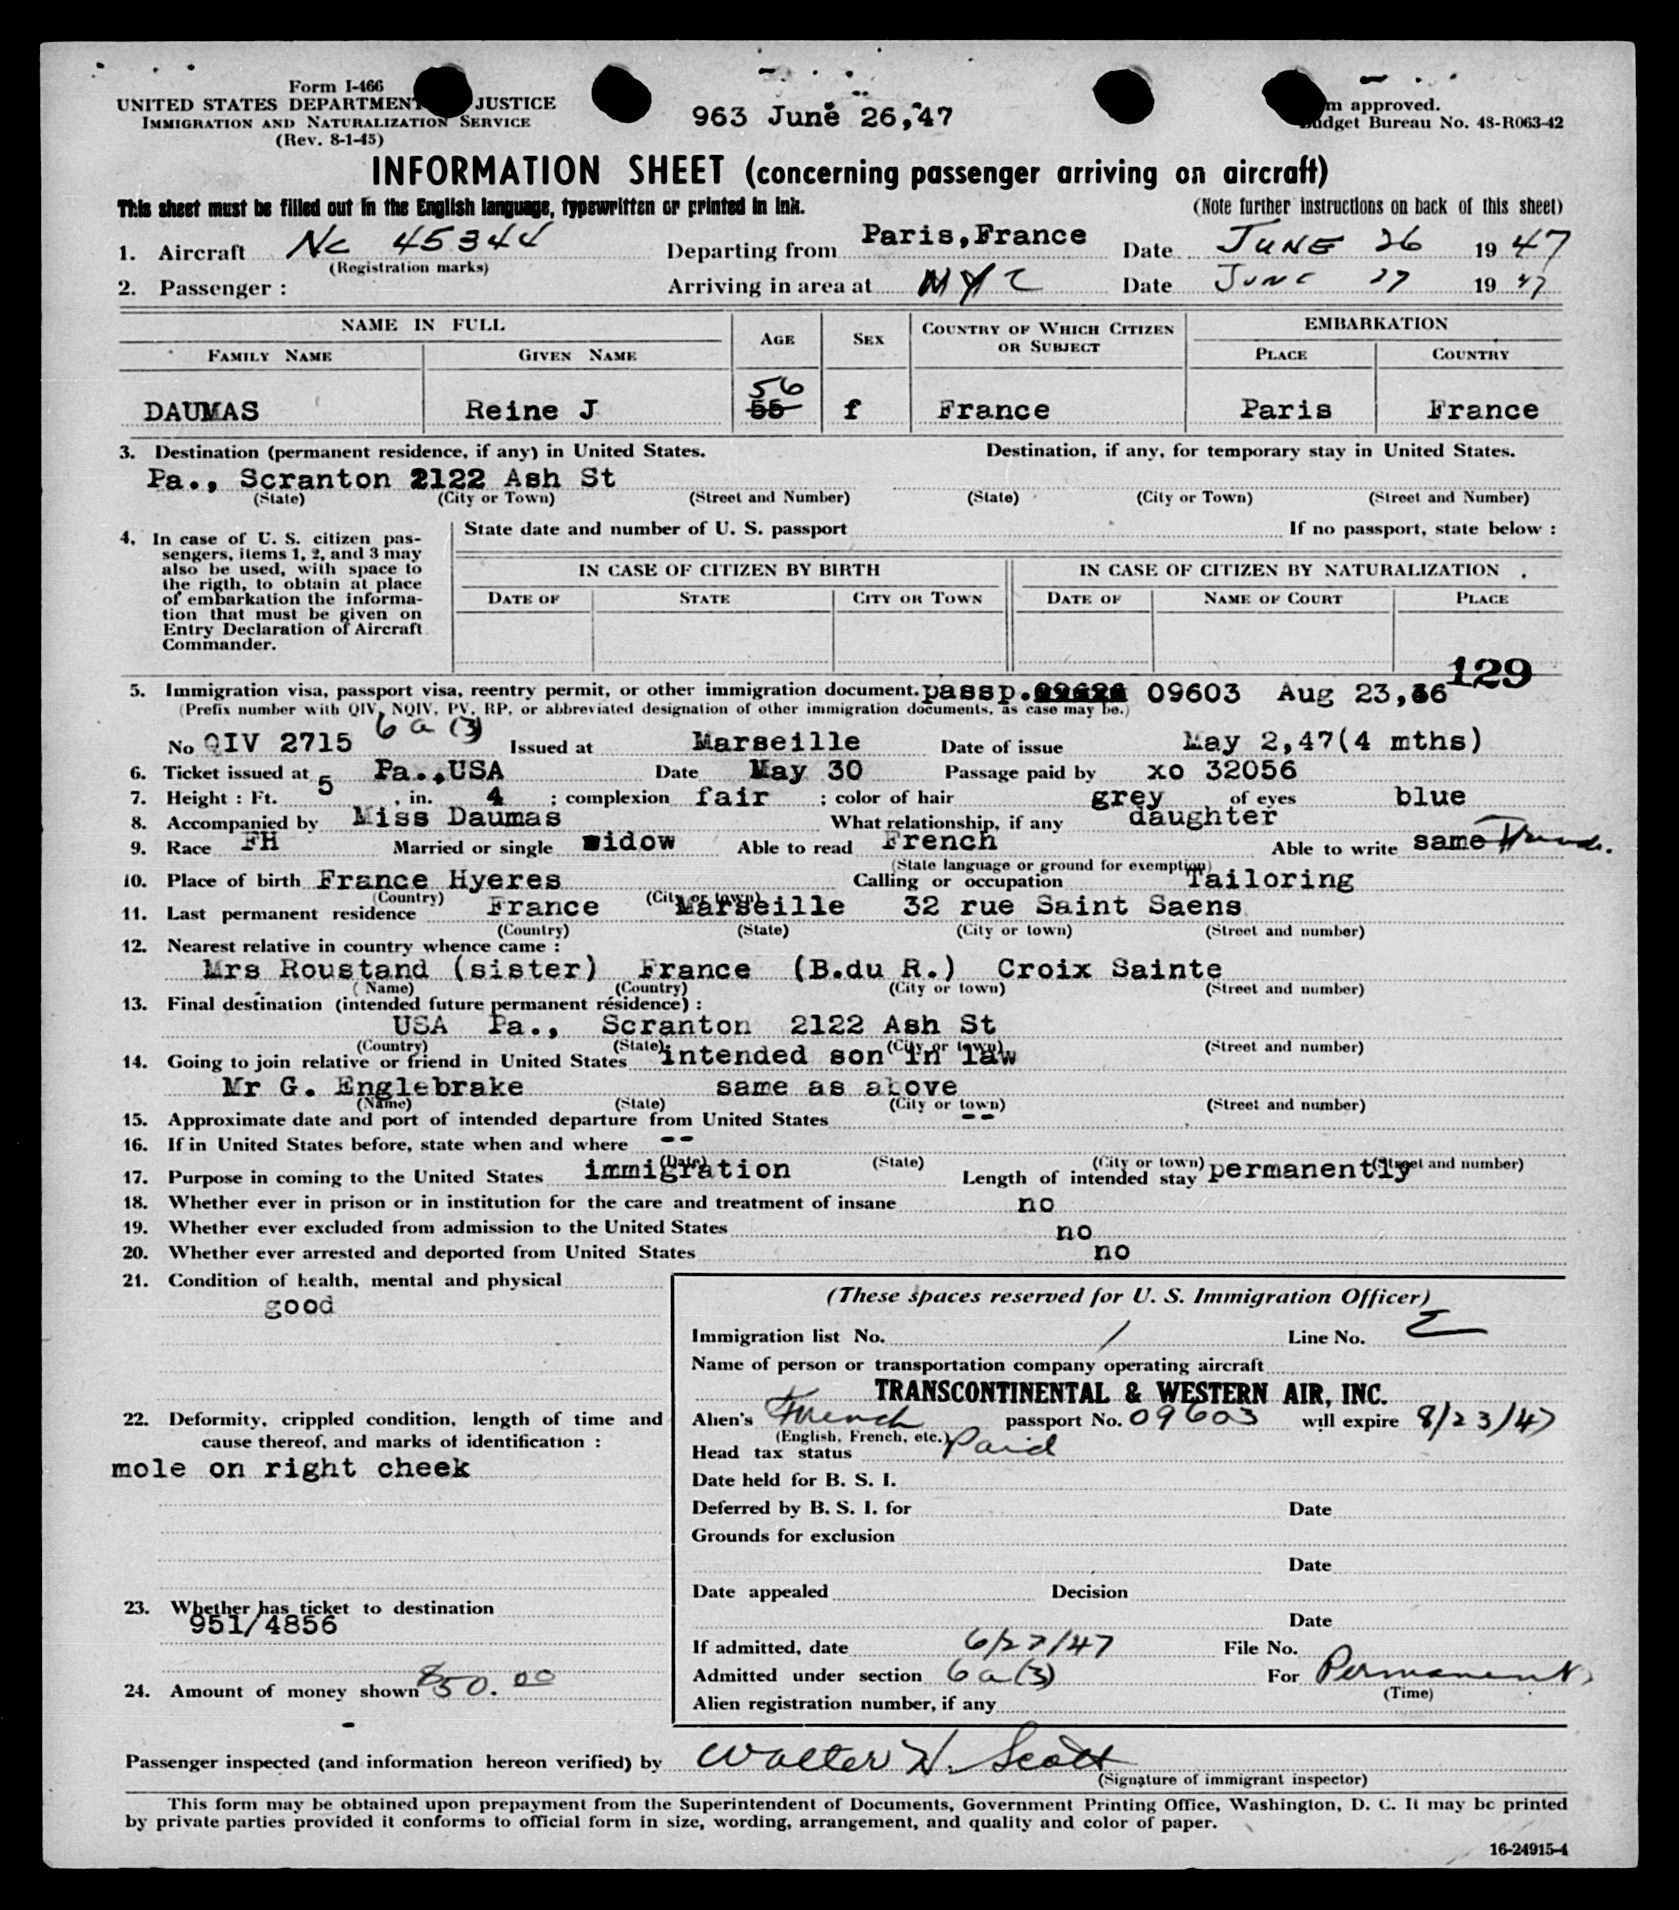 Form I-466
UNITED STATES DEPARTMENT JUSTICE
IMMIGRATION AND NATURALIZATION SERVICE
(Rev. 8-1-45)
963 June 26,47
m approved.
udget Bureau No. 48-R063-42
INFORMATION SHEET (concerning passenger arriving on aircraft)
This sheet must be filled out in the English language, typewritten or printed in ink. (Note further instructions on back of this sheet)
1. Aircraft Nc 45344 Departing from Paris,France Date JUNE 26 1947
(Registration marks)
2. Passenger : Arriving in area at NYC Date JUNE 27 1947
NAME IN FULL AGE SEX COUNTRY OF WHICH CITIZEN OR SUBJECT EMBARKATION
FAMILY NAME GIVEN NAME PLACE COUNTRY
56
DAUMAS Reine J 55 f France Paris France
3. Destination (permanent residence, if any) in United States. Destination, if any, for temporary stay in United States.
Pa., Scranton 2122 Ash St
(State) (City or Town) (Street and Number) (State) (City or Town) (Street and Number)
4. In case of U. S. citizen pas-
sengers, items 1, 2, and 3 may
also be used, with space to
the rigth, to obtain at place
of embarkation the informa-
tion that must be given on
Entry Declaration of Aircraft
Commander.
State date and number of U. S. passport If no passport, state below :
IN CASE OF CITIZEN BY BIRTH IN CASE OF CITIZEN BY NATURALIZATION
DATE OF STATE CITY OR TOWN DATE OF NAME OF COURT PLACE
129
5. Immigration visa, passport visa, reentry permit, or other immigration document. passp. 09603 Aug 23,46
(Prefix number with QIV, NQIV, PV, RP, or abbreviated designation of other immigration documents, as case may be.)
6a(3)
No QIV 2715 Issued at Marseille Date of issue May 2,47(4 mths)
6. Ticket issued at Pa.,USA Date May 30 Passage paid by xo 32056
7. Height : Ft. 5 , in. 4 ; complexion fair ; color of hair grey of eyes blue
8. Accompanied by Miss Daumas What relationship, if any daughter
9. Race FH Married or single widow Able to read French Able to write same French.
(State language or ground for exemption)
10. Place of birth France Hyeres Calling or occupation Tailoring
(Country) (City or town)
11. Last permanent residence France Marseille 32 rue Saint Saens
(Country) (State) (City or town) (Street and number)
12. Nearest relative in country whence came :
Mrs Roustand (sister) France (B.du R.) Croix Sainte
(Name) (Country) (City or town) (Street and number)
13. Final destination (intended future permanent résidence) :
USA Pa., Scranton 2122 Ash St
(Country) (State) (City or town) (Street and number)
14. Going to join relative or friend in United States intended son in law
Mr G. Englebrake same as above
(Name) (State) (City or town) (Street and number)
15. Approximate date and port of intended departure from United States --
16. If in United States before, state when and where --
(Date) (State) (City or town) (Street and number)
17. Purpose in coming to the United States immigration Length of intended stay permanently
18. Whether ever in prison or in institution for the care and treatment of insane no
19. Whether ever excluded from admission to the United States no
20. Whether ever arrested and deported from United States no
21. Condition of health, mental and physical
good
22. Deformity, crippled condition, length of time and
cause thereof, and marks of identification :
mole on right cheek
23. Whether has ticket to destination
951/4856
24. Amount of money shown $50.00
(These spaces reserved for U. S. Immigration Officer)
Immigration list No. 1 Line No. Σ
Name of person or transportation company operating aircraft
TRANSCONTINENTAL & WESTERN AIR, INC.
Alien's French passport No. 09603 will expire 8/23/47
(English, French, etc.)
Head tax status Paid
Date held for B. S. I.
Deferred by B. S. I. for Date
Grounds for exclusion
Date
Date appealed Decision
Date
If admitted, date 6/27/47 File No.
Admitted under section 6a(3) For Permanent
(Time)
Alien registration number, if any
Passenger inspected (and information hereon verified) by Walter W. Scott
(Signature of immigrant inspector)
This form may be obtained upon prepayment from the Superintendent of Documents, Government Printing Office, Washington, D. C. It may be printed
by private parties provided it conforms to official form in size, wording, arrangement, and quality and color of paper.
16-24915-4